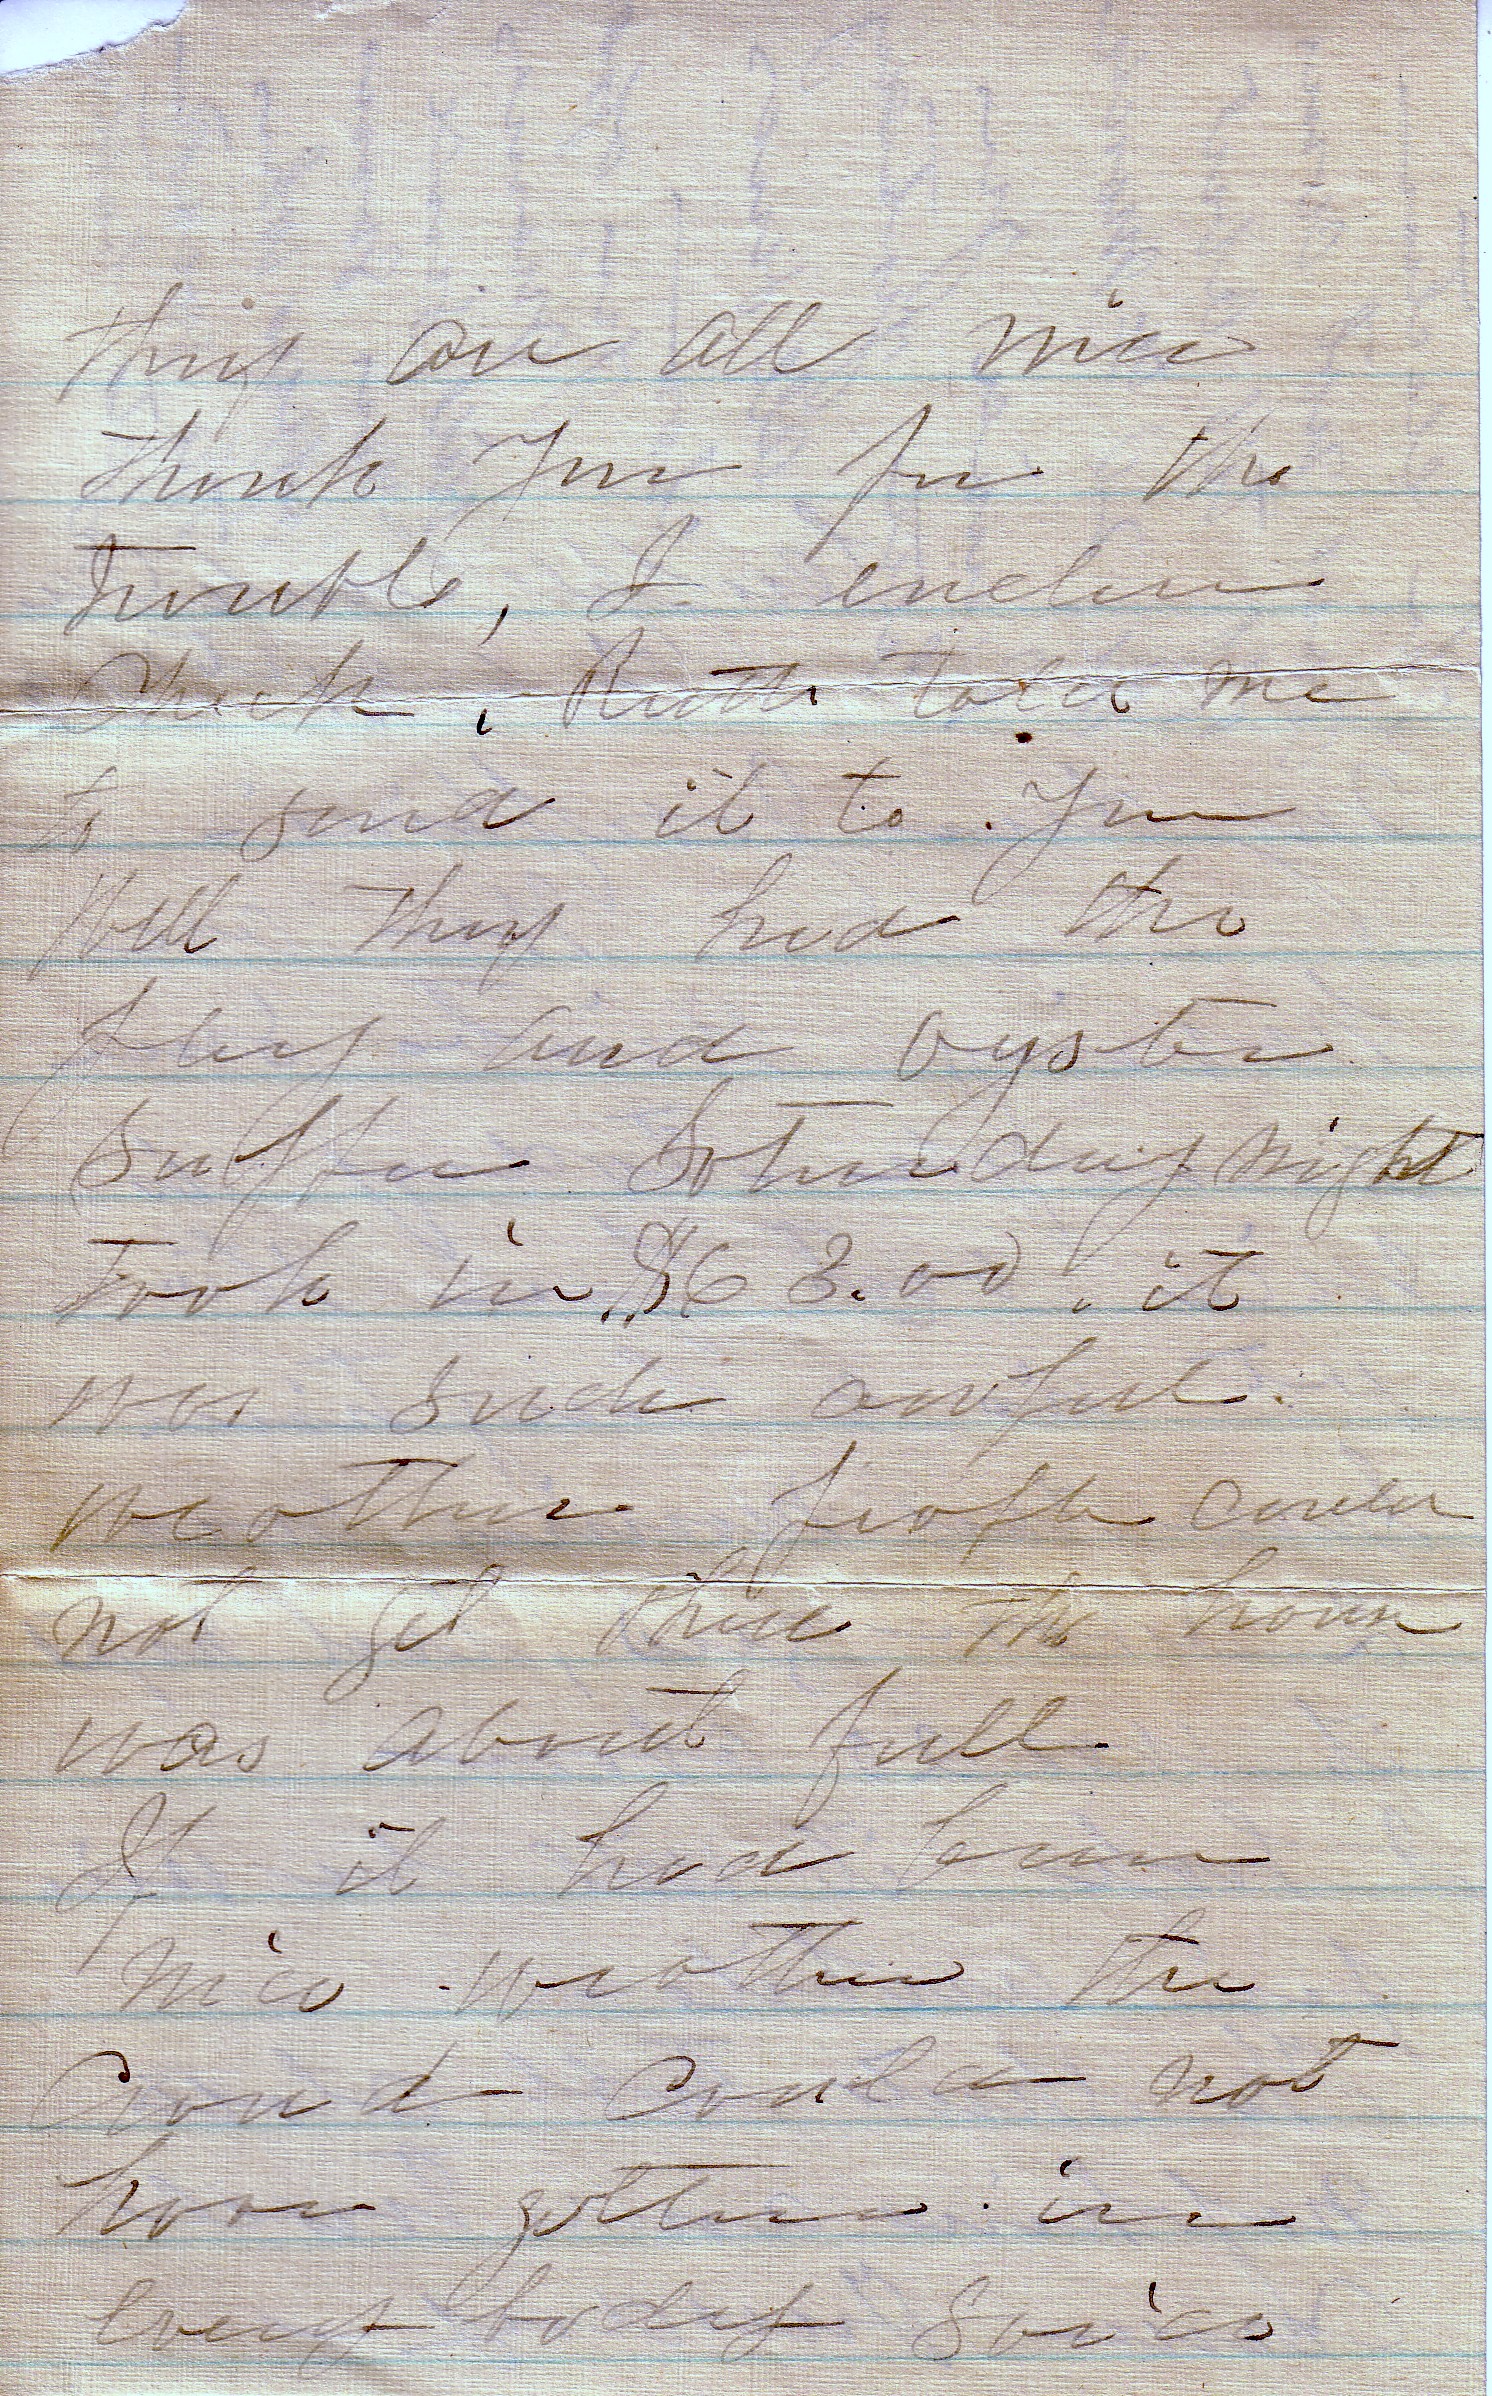 they are all nice
thank you for the
trouble, I enclose
check. Ruth told me
to send it to you
Well they had the
play and oyster
supper Saturday night
took in $63.00. it
was such awful
weather people could
not get there the house
was about full
If it had been
nice weather the
crowd could not
have gotten in
every body said